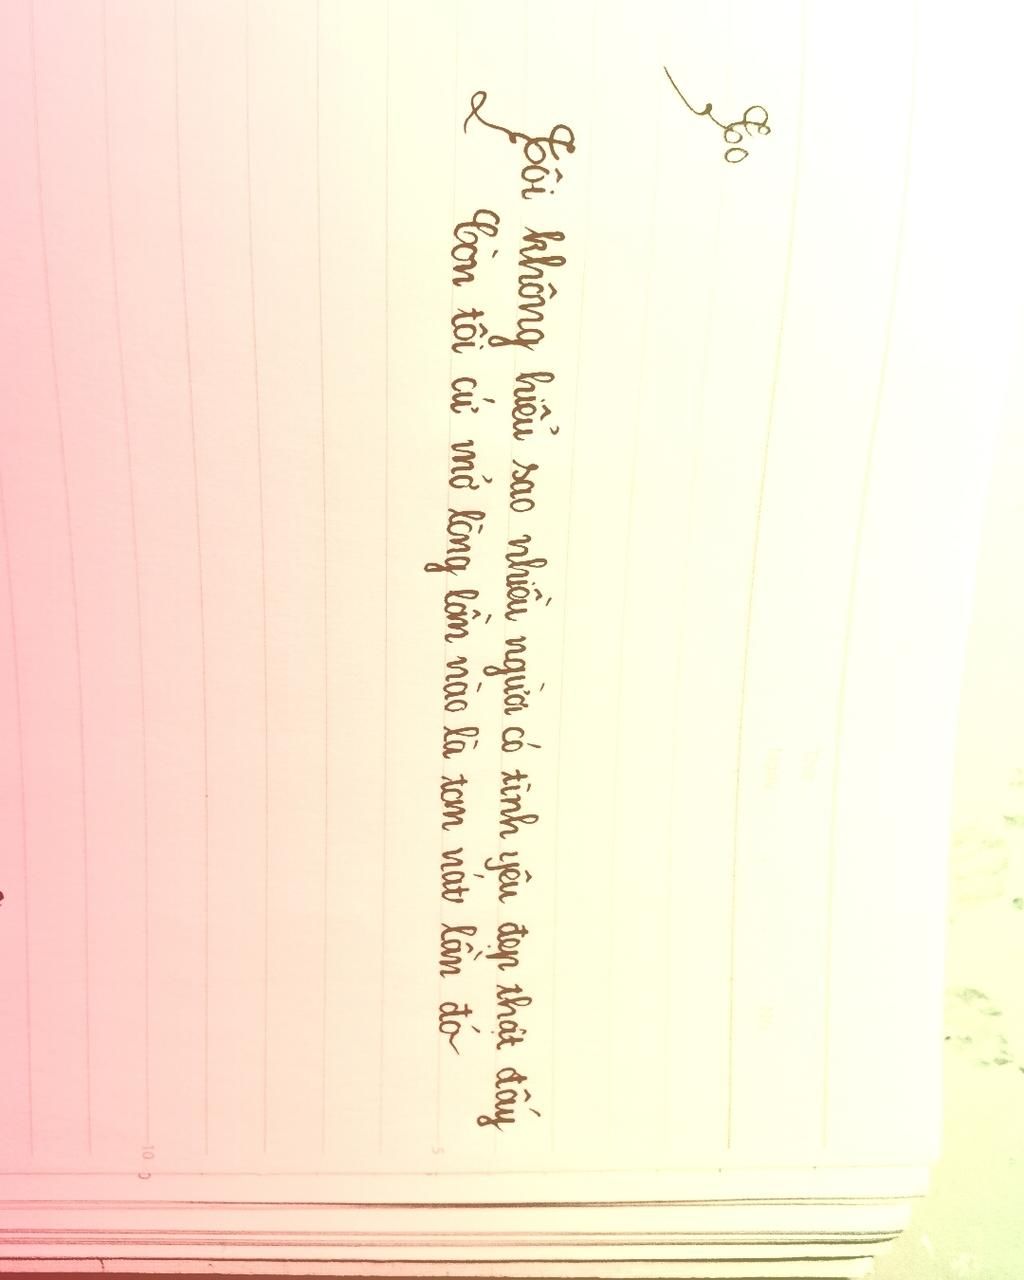 To
Tôi không hiểu sao nhiều người có tình yêu đẹp thật đấy
Còn tôi cứ mở lòng lần nào là tan nát lần đó
5
10